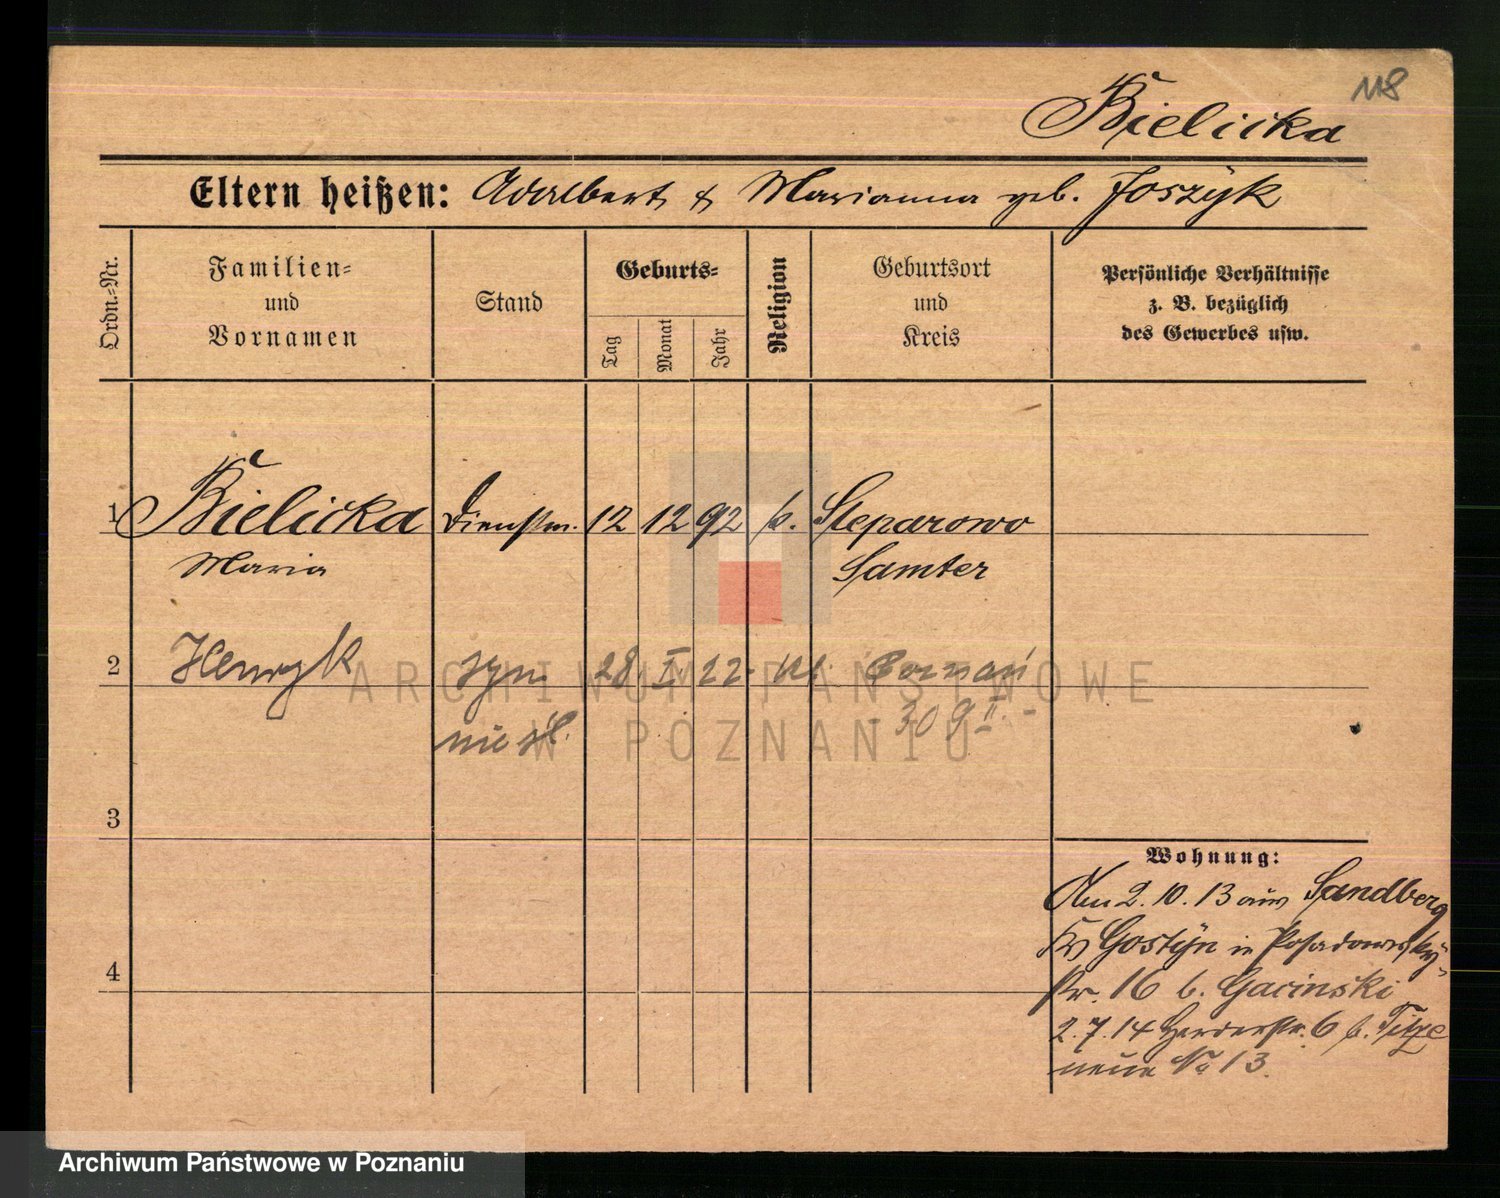 118
Bielicka
Eltern heißen: Adalbert & Marianna geb. Joszyk
Ordn.-Nr.
Familien-
und
Vornamen
Stand
Geburts-
Tag
Monat
Jahr
Religion
Geburtsort
und
Kreis
Persönliche Verhältnisse
z. B. bezüglich
des Gewerbes usw.
1 Bielicka Dienstm. 12 12 92 k. Steparowo
Maria Samter
2 Henryk syn 28 I 22
nie śl.
3
4
Wohnung:
Am 2.10.13 aus Sandberg
Kr Gostÿn in Posadowsky-
str. 16 b. Gacinski
2.7.14 Herderstr. 6 b. Titze
neue No 13.
ARCHIWUM PAŃSTWOWE
W POZNANIU
Archiwum Państwowe w Poznaniu